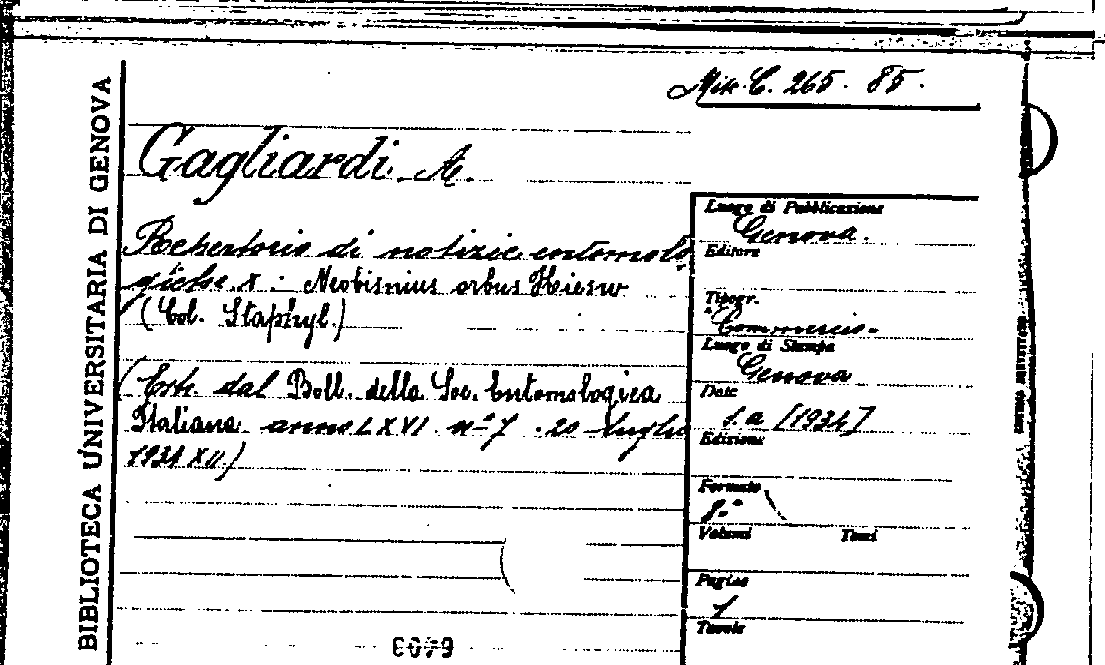 BIBLIOTECA UNIVERSITARIA DI GENOVA
Misc. C. 265. 85.
Gagliardi A.
Repertorio di notizie entomolo
giche X: Neobisnius orbus Kiesw
(Col. Staphyl.)
(Estr. dal Boll. della Soc. Entomologica
Italiana anno LXVI nº 7. 20 luglio
1934 XII)
Luogo di Pubblicazione
Genova.
Editore
Tipogr.
Commercio.
Luogo di Stampa
Genova
Date
s.a [1934]
Edizione
Formato
8.º
Volumi Tomi
Pagine
1
Tavole